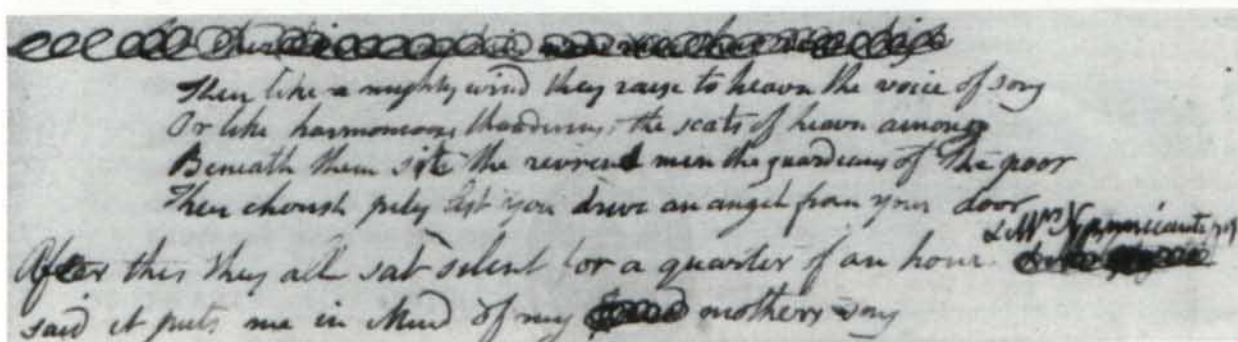 Then like a mighty wind they raise to heavn the voice of song
Or like harmonious thunderings the seats of heavn among
Beneath them sit the revrend men the guardians of the poor
Then cherish pity lest you drive an angel from your door
& Mrs Nannicantipot
After this they all sat silent for a quarter of an hour
said it puts me in Mind of my mothers song